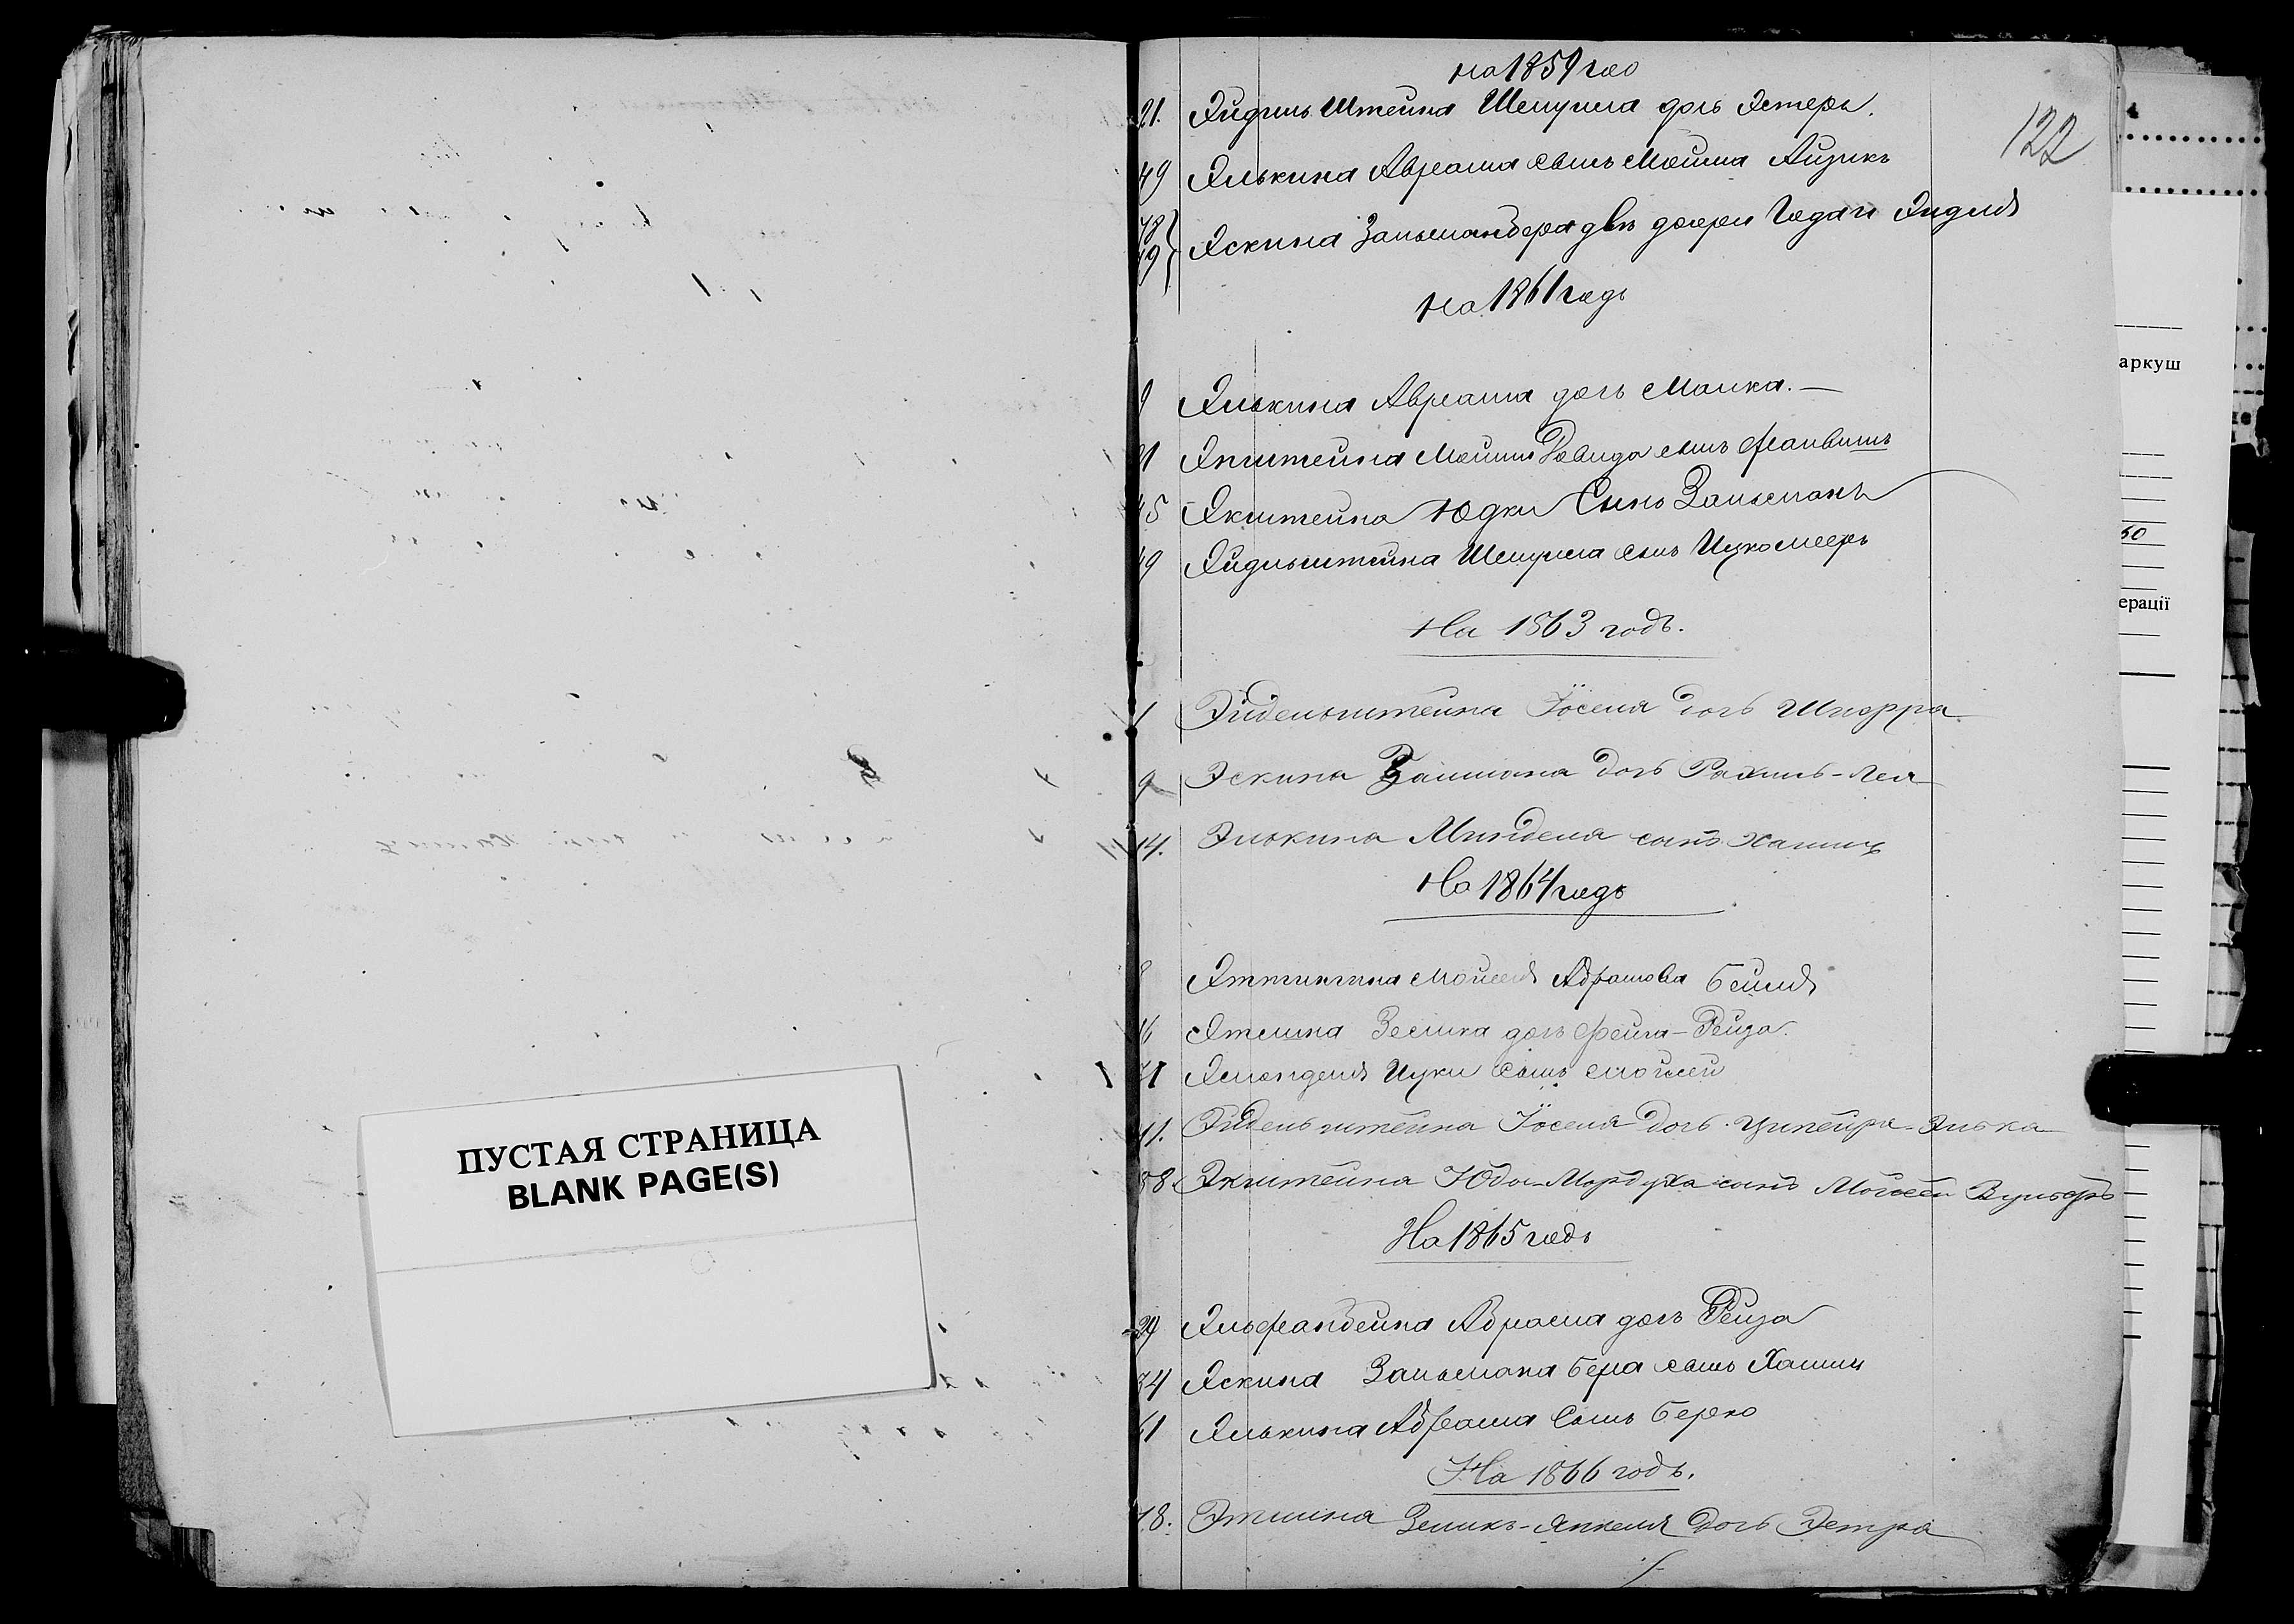 ПУСТАЯ СТРАНИЦА
BLANK PAGE(S)
на 1859 год
122
21. Эйдиль Штейна Шемуила дочь Эстеръ.
49 Элькина Авраама сынъ Мойша Айзикъ
48
49 Эскина Залмандера двѣ дочери Года и Эйдля
на 1861 годъ
9 Элькина Авраама дочь Малка. —
21 Эпштейна Мойши Довида сынъ Файвишъ
45 Экштейна Юдки Сынъ Залманъ
49 Эйдльштейна Шемуила сынъ Ицко Мееръ
На 1863 годъ.
1 Эйдельштейна Іоселя дочь Шпорра
9 Эскина Залмана дочь Рахиль-Лея
14. Элькина Минделя сынъ Хаимъ
На 1864 годъ
8 Мойсея Абрамова Бейля
16 Этмина Зелика дочь Фейга-Рейза.
Ицки Сынъ Мойсей
11. Эйдельштейна Іоселя дочь Ципейра-Элька
58. Экштейна Юда-Мордуха сынъ Мойсей Вульфъ
На 1865 годъ
29 Абрама дочь Рейза
34 Эскина Залмана Бера сынъ Хаимъ
61 Элькина Абрама Сынъ Берко
На 1866 годъ.
18. Этмина Зеликъ- дочь Эстра
аркуш
50
ерації